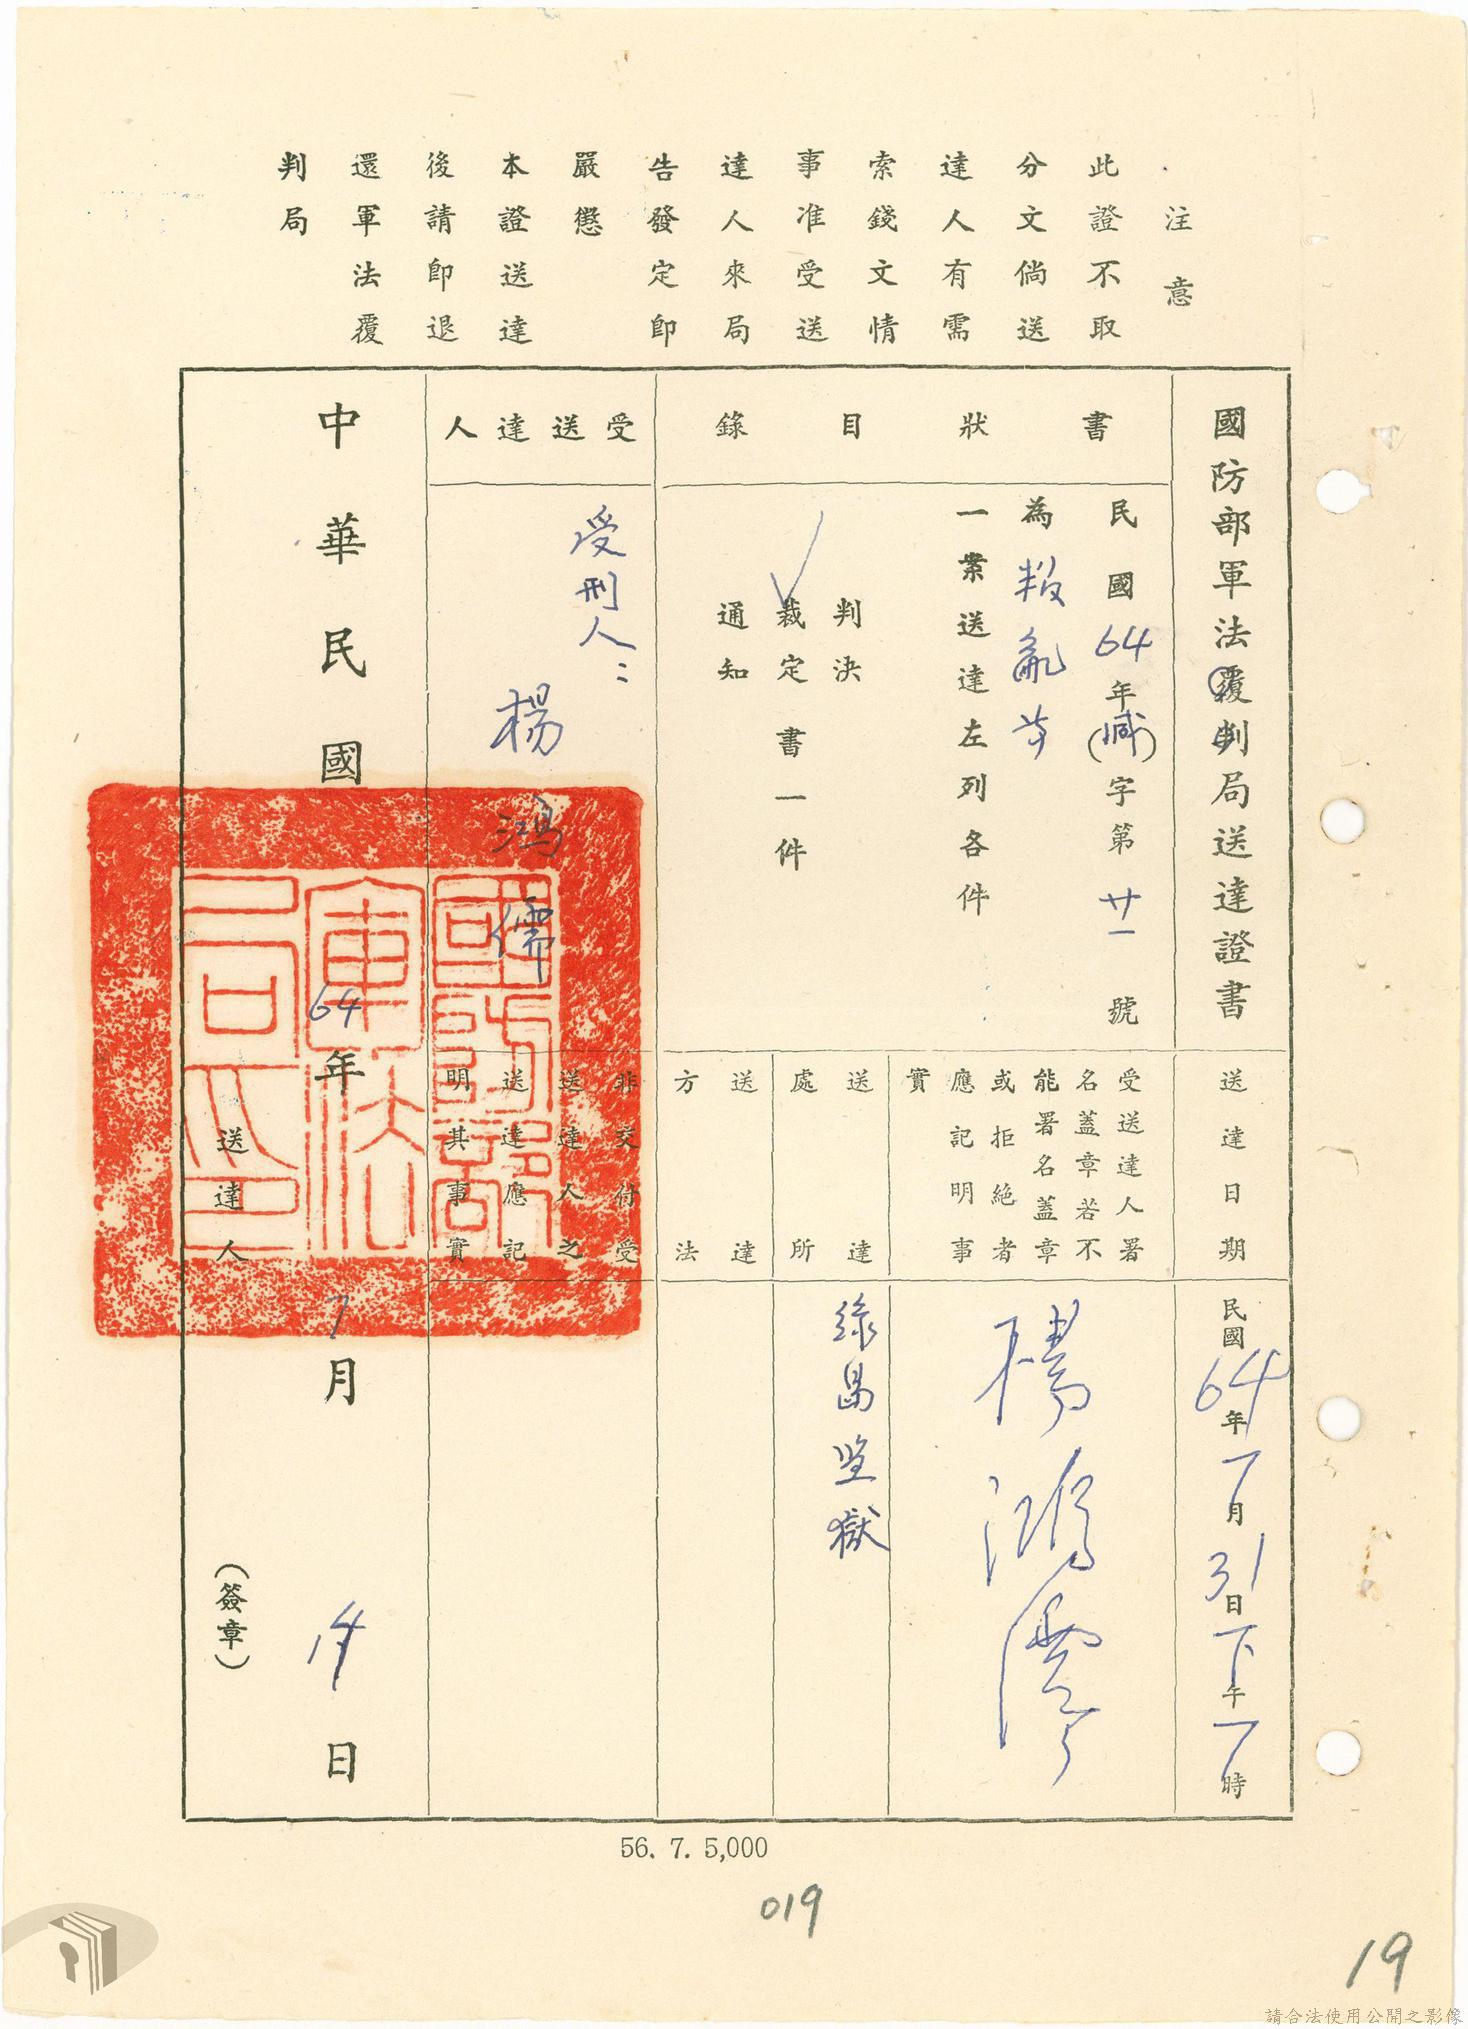 注意
此證不取
分文倘送
達人有需
索錢文情
事准受送
達人來局
告發定即
嚴懲
本證送達
後請即退
還軍法覆
判局
國防部軍法覆判局送達證書
書狀目錄
民國64年(減)字第廿一號
為叛亂等
一案送達左列各件
判決
裁定書一件
通知
受送達人
受刑人:
楊鴻儒
送達日期
民國64年7月31日下午7時
受送達人署
名蓋章若不
能署名蓋章
或拒絕者
應記明事
實
楊鴻儒
送達處所
綠島監獄
送達方法
非交付受
送達人之
送達應記
明其事實
中華民國64年7月14日
送達人
(簽章)
國防部
軍法
局印
56. 7. 5,000
019
19
請合法使用公開之影像